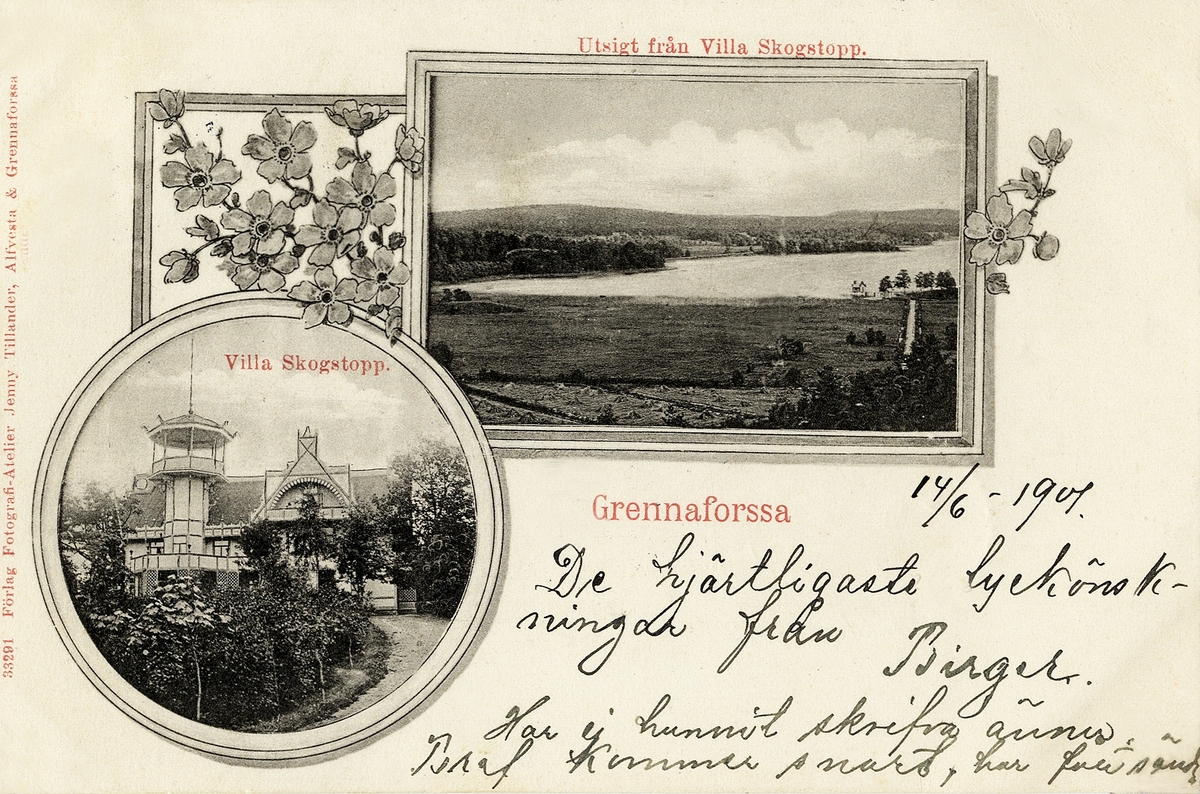 Utsigt från Villa Skogstopp.
Villa Skogstopp.
33291 Förlag Fotografi-Atelier Jenny Tillander, Alfvesta & Grennaforssa
Grennaforssa
14/6 - 1901.
De hjärtligaste lyckönsk-
ningar från
Birger.
Har ej hunnit skrifva ännu.
Bref kommer snart, har